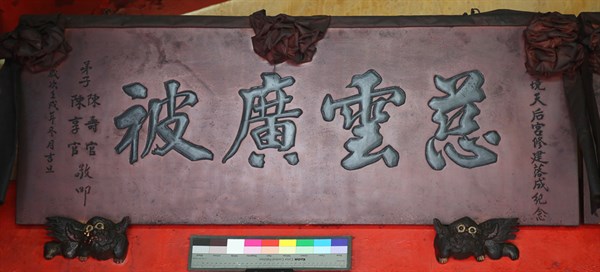 天后宮修建落成紀念
慈雲廣被
弟子
陳壽官
陳享官
敬叩
歲次壬戌年冬月吉立